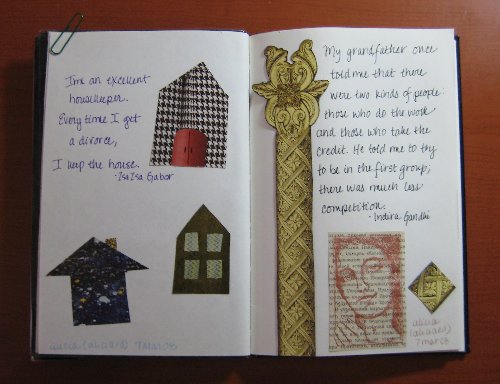 I'm an excellent
housekeeper.
Every time I get
a divorce,
I keep the house.
-IsaIsa Gabor
alicia (aliciard) 7 mar 08
My grandfather once
told me that there
were two kinds of people:
those who do the work
and those who take the
credit. He told me to try
to be in the first group;
there was much less
competition.
-Indira Gandhi
alicia
7 mar 08